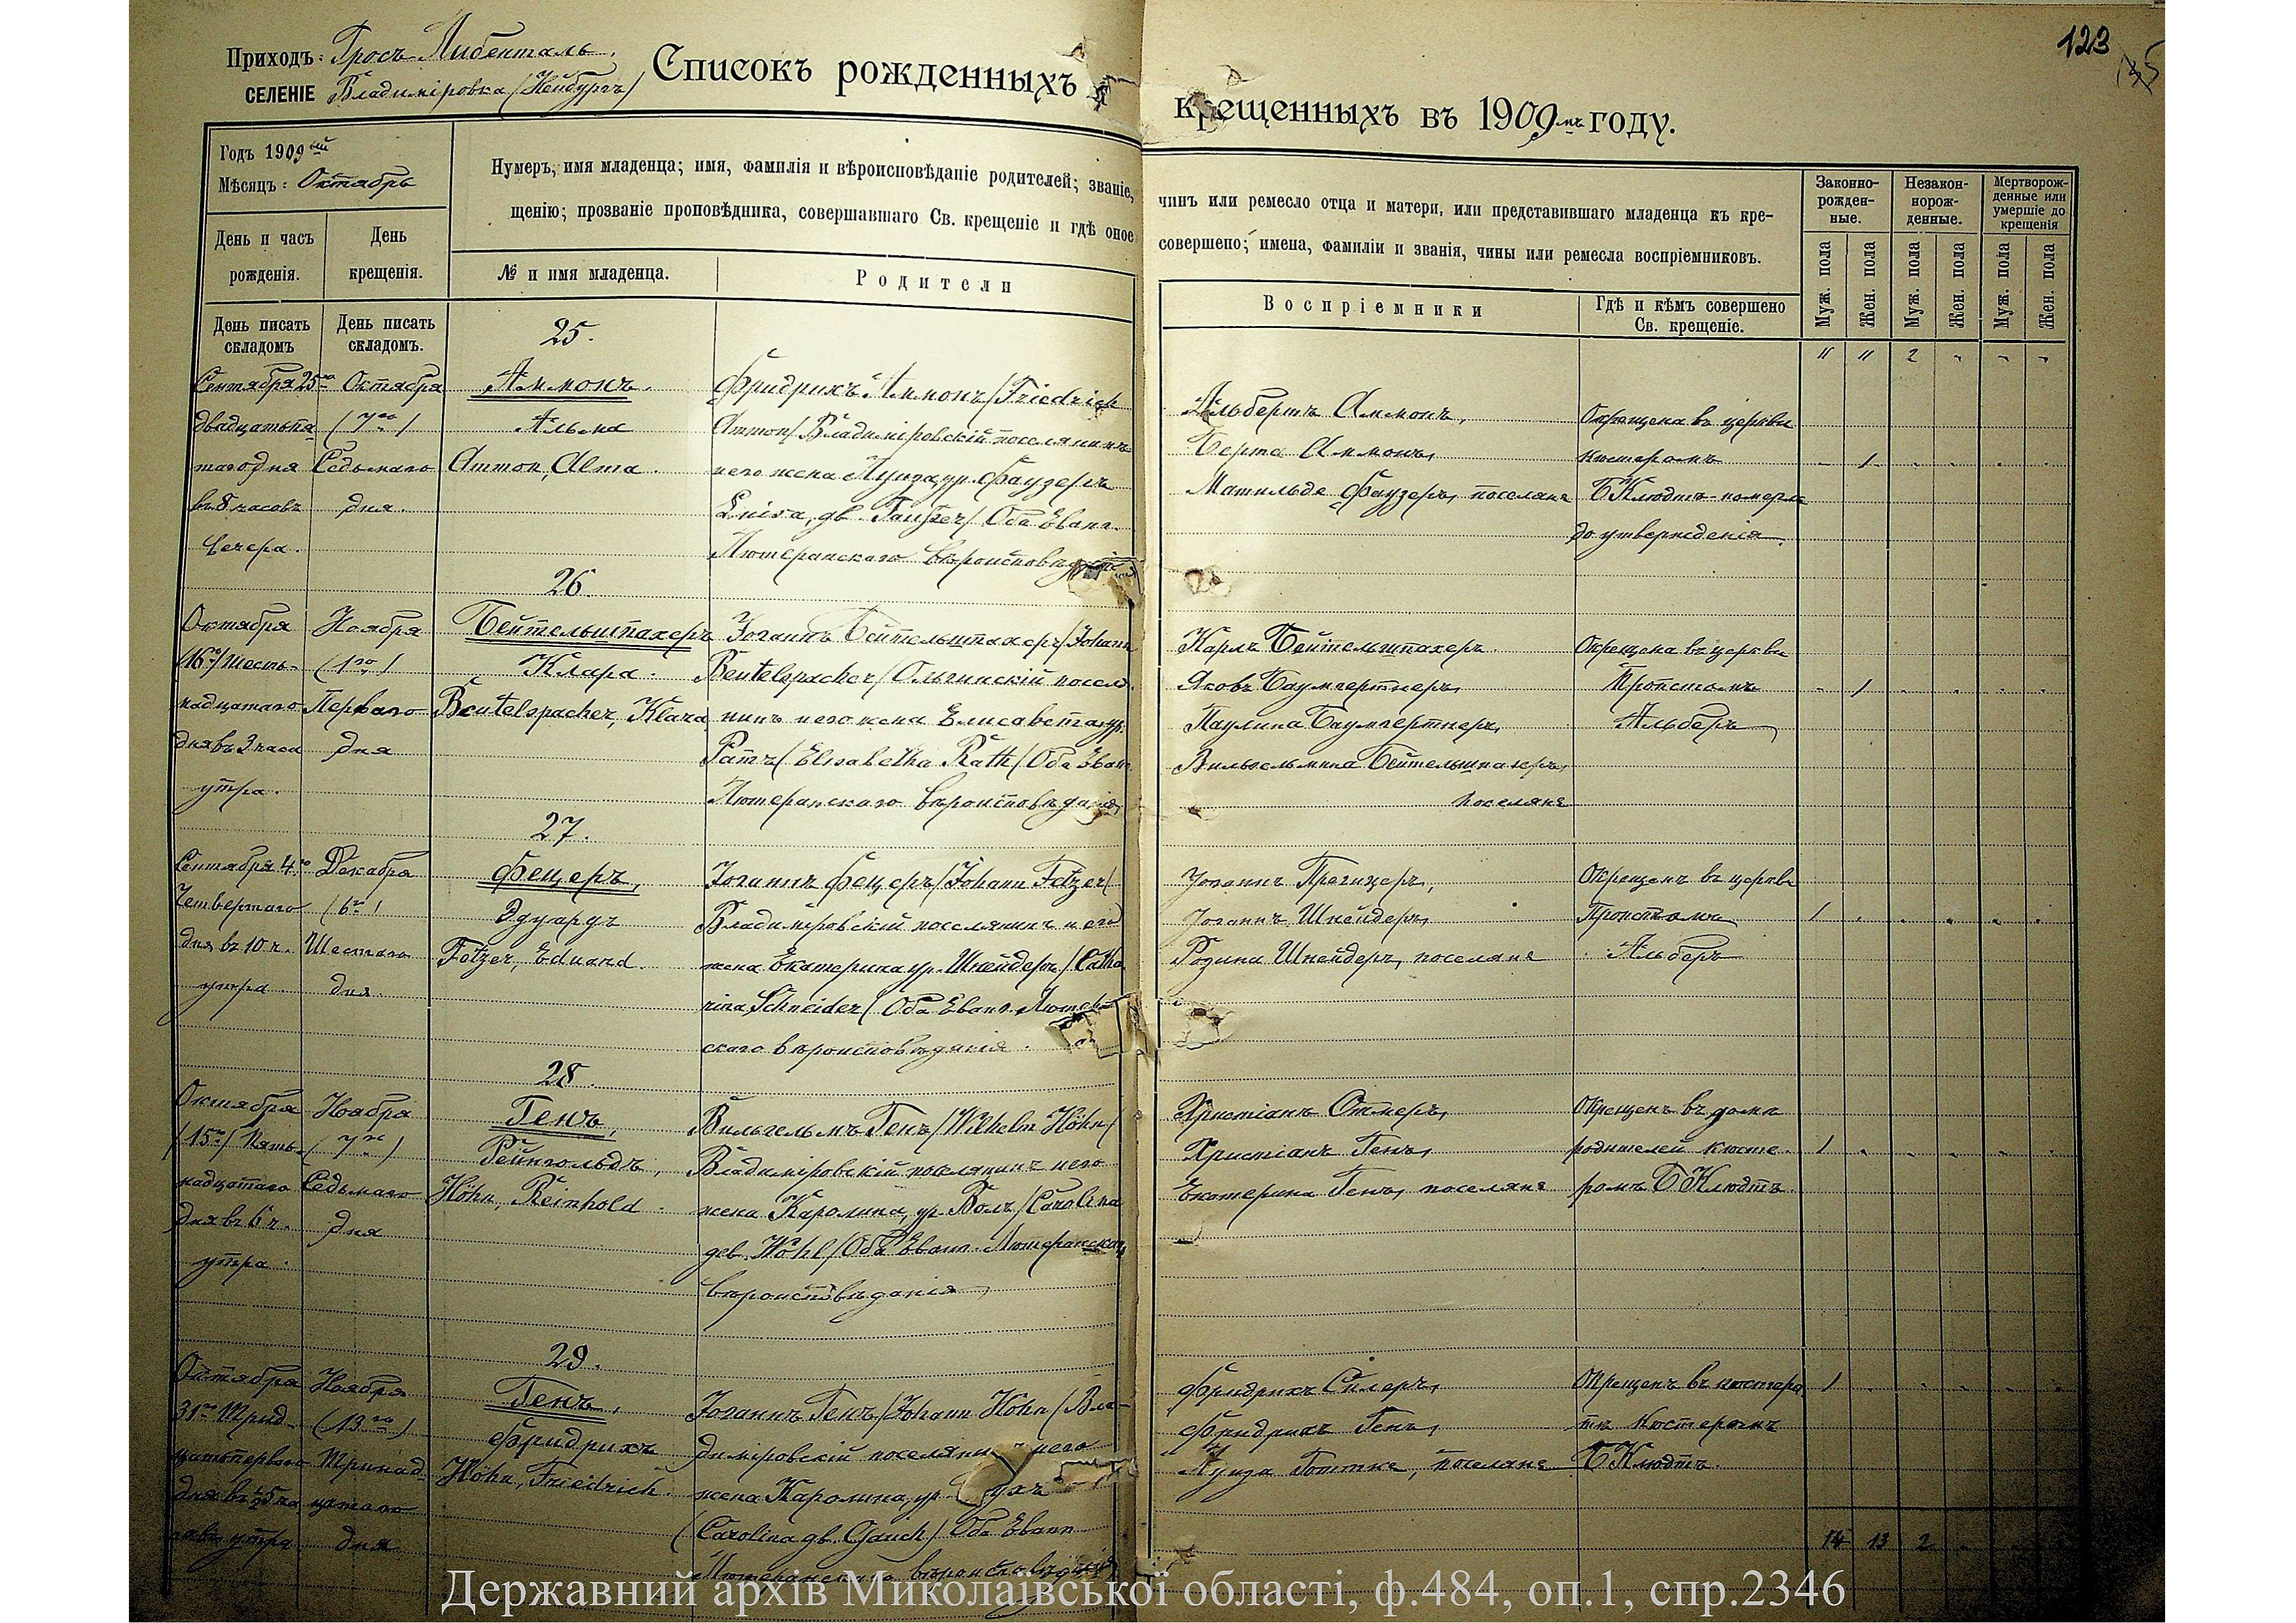 Приходъ: Гросъ Либенталь.
СЕЛЕНІЕ Владиміровка (Нейбургъ)
Списокъ рожденныхъ и крещенныхъ въ 1909мъ году.
123
Годъ 1909ый
Мѣсяцъ: Октябрь
Нумеръ, имя младенца; имя, фамилія и вѣроисповѣданіе родителей; званіе, чинъ или ремесло отца и матери, или представившаго младенца къ кре-
щенію; прозваніе проповѣдника, совершавшаго Св. крещеніе и гдѣ оное совершено; имена, фамиліи и званія, чины или ремесла воспріемниковъ.
День и часъ рожденія.
День крещенія.
№ и имя младенца.
Родители
Воспріемники
Гдѣ и кѣмъ совершено Св. крещеніе.
Законно-рожден-ные.
Незакон-норож-денные.
Мертворож-денные или умершіе до крещенія
Муж. пола
Жен. пола
Муж. пола
Жен. пола
Муж. пола
Жен. пола
День писать складомъ
День писать складомъ.
" " 2 " " "
25.
Сентября 25го
двадцатьпя
таго дня
въ 8 часовъ
вечера.
Октября
(7го)
Седьмаго
дня.
Аммонъ.
Альма
Ammon, Alma.
Фридрихъ Аммонъ (Friedrich
Ammon) Владиміровскій поселянинъ
и его жена Луиза, ур. Фаузеръ
Luisa, дв. Fauser) Оба Еванг.
Лютеранскаго вѣроисповѣданія
Альбертъ Аммонъ,
Берта Аммонъ,
Матильде Фаузеръ, поселяне
Окрещена въ церкви
кюстеромъ
Б Клюдтъ - померла
до утвержденія.
1
26.
Октября
(16го) Шесть-
надцатаго
дня въ 3 часа
утра.
Ноября
(1го)
Перваго
дня
Бейтельшпахеръ
Клара.
Beutelspacher, Klara,
Іоганнъ Бейтельшпахеръ (Johann
Beutelspacher) Ольгинскій поселя-
нинъ и его жена Елисавета ур.
Ратъ (Elisabetha Rath) Оба Еванг.
Лютеранскаго вѣроисповѣданія,
Карлъ Бейтельшпахеръ.
Яковъ Баумгертнеръ,
Паулина Баумгертнеръ,
Вильгельмина Бейтельшпахеръ,
поселяне
Окрещена въ церкви
Пропстомъ
Альберъ
1
27.
Сентября 4го
Четвертаго
дня въ 10 ч.
утра.
Декабря
(6го)
Шестаго
дня.
Фецеръ,
Эдуардъ
Fetzer, Eduard.
Іоганнъ Фецеръ (Johann Fetzer)
Владиміровскій поселянинъ и его
жена Екатерина ур. Шнейдеръ (Catha
rina Schneider) Оба Еванг. Лютеран
скаго вѣроисповѣданія.
Іоганнъ Прегицеръ,
Іоганнъ Шнейдеръ,
Розина Шнейдеръ, поселяне
Окрещенъ въ церкви
Пропстомъ
Альберъ
1
28.
Октября
(15го) Пять-
надцатаго
дня въ 6 ч.
утра.
Ноября
(7го)
Седьмаго
дня
Генъ,
Рейнгольдъ,
Höhn, Reinhold.
Вильгельмъ Генъ (Wilhelm Höhn)
Владиміровскій поселянинъ и его
жена Каролина, ур. Волъ (Carolina
дев. Wohl) Оба Еванг. Лютеранскаго
вѣроисповѣданія,
Христіанъ Отмеръ,
Христіанъ Генъ,
Екатерина Генъ, поселяне
Окрещенъ въ домѣ
родителей кюсте-
ромъ Б Клюдтъ.
1
29.
Октября
31го Трид-
цатьперваго
утра
Ноября
(13го)
Тринад-
цатаго
дня
Генъ,
Фридрихъ
Höhn, Friedrich.
Іоганнъ Генъ (Johann Höhn) Вла-
диміровскій поселянинъ и его
жена Каролина, ур.
(Carolina дв. Gauch) Оба Еванг.
Лютеранскаго вѣроисповѣданія
Фридрихъ Силеръ,
Фридрихъ Генъ,
Луиза Готтке, поселяне
Окрещенъ въ кюстера
тѣ Кюстеромъ
Б Клюдтъ.
1
14 13 2
Державний архів Миколаївської області, ф.484, оп.1, спр.2346